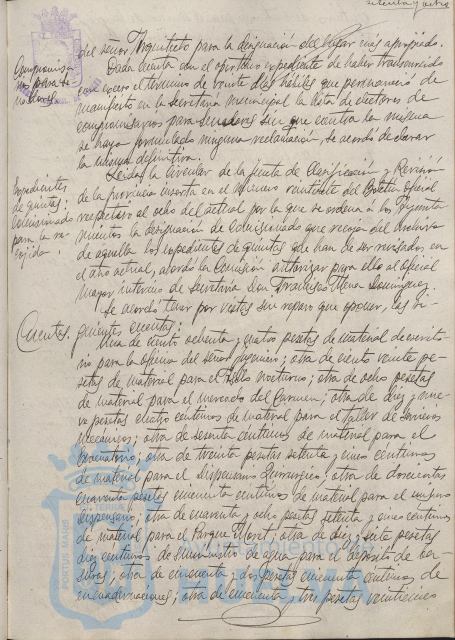 setenta y ocho
del señor Arquitecto para la designación del lugar más apropiado.
Compromisarios para Senadores.
Dada cuenta con el oportuno expediente de haber transcurrido
con exceso el término de veinte días hábiles que permaneció de
manifiesto en la secretaría municipal la lista de electores de
compromisarios para senadores sin que contra la misma
se haya formulado ninguna reclamación, se acordó declarar
la misma definitiva.
Expedientes de quintas. Comisionado para la recogida.
Leída la circular de la Junta de Clasificación y Revisión
de la provincia inserta en el número veintisiete del Boletín Oficial
respectivo al ocho del actual por la que se ordena á los Ayunta
mientos la designación de Comisionado que recoja del Archivo
de aquella los expedientes de quintas que han de ser revisados en
el año actual, acordó la Comisión autorizar para ello al oficial
mayor interino de Secretaría Don Francisco Mena Domínguez.
Se acordó tener por vistas sin reparo que oponer, las si-
Cuentas.
guientes cuentas:
Una de ciento ochenta y cuatro pesetas de material de escrito-
rio para la oficina del señor Ingeniero; otra de ciento veinte pe-
setas de material para el nocturno; otra de ocho pesetas
de material para el mercado del Carmen; otra de diez y nue-
ve pesetas cuatro centimos de material para el taller de servicios
Mecánicos; otra de sesenta centimos de material para el
otra de treinta pesetas setenta y cinco centimos
de material para el Dispensario Quirúrgico; otra de doscientas
cuarenta pesetas cincuenta centimos de material para el mismo
dispensario; otra de cuarenta y ocho pesetas setenta y cinco centimos
de material para el Parque Moret; otra de diez y siete pesetas
diez centimos de suministro de agua para el depósito de ba-
suras; otra de cincuenta y dos pesetas cincuenta centimos de
encuadernaciones; otra de cincuenta y tres pesetas veinticinco
PORTUS MARIS